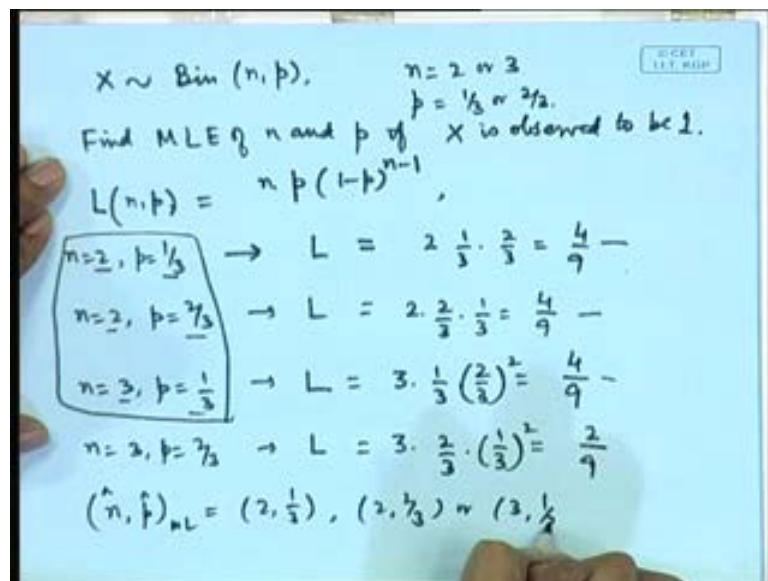 X ~ Bin (n, p). n = 2 or 3
p = 1/3 or 2/3.
© CET
I.I.T. KGP
Find MLE of n and p if X is observed to be 1.
L(n, p) = n p (1-p)^{n-1} ,
n=2, p=1/3 → L = 2 1/3 · 2/3 = 4/9 —
n=2, p=2/3 → L = 2 · 2/3 · 1/3 = 4/9 —
n=3, p=1/3 → L = 3 · 1/3 (2/3)^2 = 4/9 —
n=3, p=2/3 → L = 3 · 2/3 · (1/3)^2 = 2/9
(n̂, p̂)_{ML} = (2, 1/3), (2, 2/3) or (3, 1/3